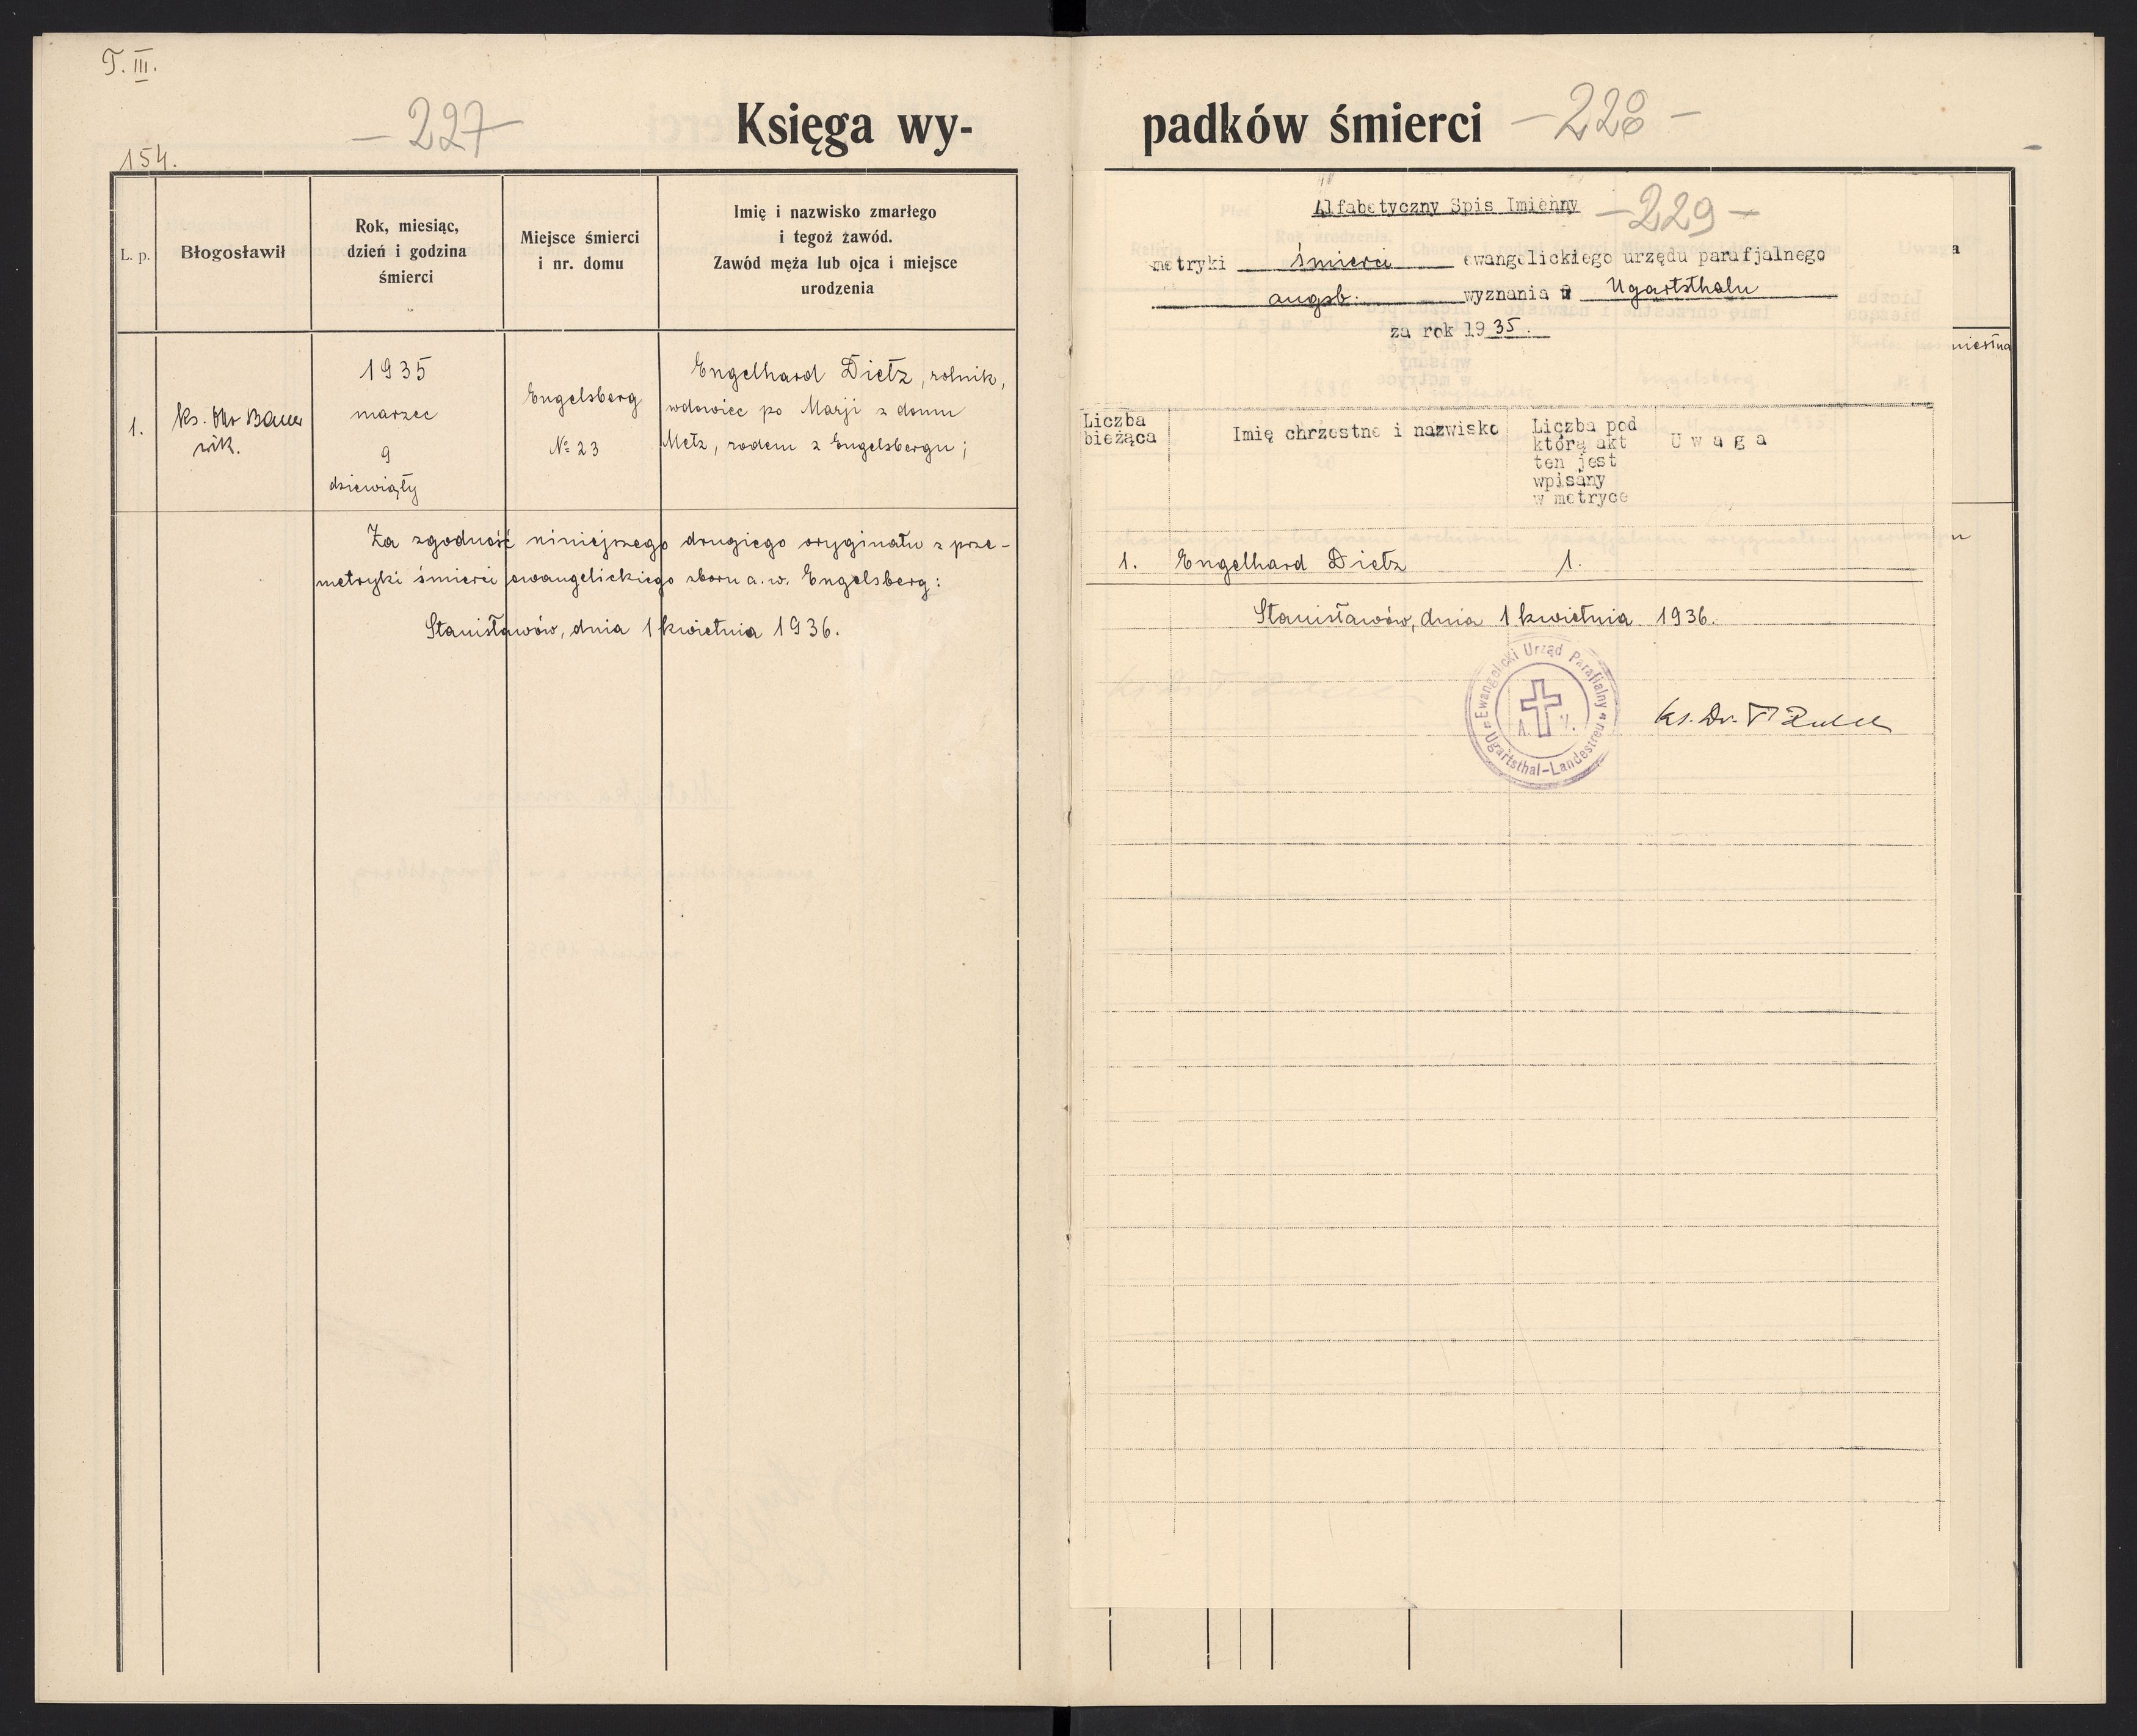 T. III.
- 227 -
154.
Księga wy-
L. p.
Błogosławił
Rok, miesiąc,
dzień i godzina
śmierci
Miejsce śmierci
i nr. domu
Imię i nazwisko zmarłego
i tegoż zawód.
Zawód męża lub ojca i miejsce
urodzenia
1.
ks. Bauer
wik.
1935
marzec
9
dziewiąty
Engelsberg
№ 23
Engelhard Dietz, rolnik,
wdowiec po Marji z domu
Metz, rodem z Engelsbergu;
Za zgodność niniejszego drugiego oryginału z prze-
metryki śmierci ewangelickiego zboru a. w. Engelsberg:
Stanisławów, dnia 1 kwietnia 1936.
padków śmierci
- 228 -
Alfabetyczny Spis Imienny
- 229 -
metryki śmierci ewangelickiego urzędu parafjalnego
augsb. wyznania Ugartsthalu
za rok 1935.
a
niestna
Liczba
bieżąca
Imię chrzestne i nazwisko
Liczba pod
którą akt
ten jest
wpisany
w metryce
U w a g a
1. Engelhard Dietz 1.
Stanisławów, dnia 1 kwietnia 1936.
Ewangelicki Urząd Parafialny
A. W.
Ugartsthal-Landestreu
ks. Dr.